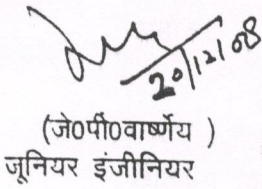 20/12/08
(जे0पी0वार्ष्णेय )
जूनियर इंजीनियर